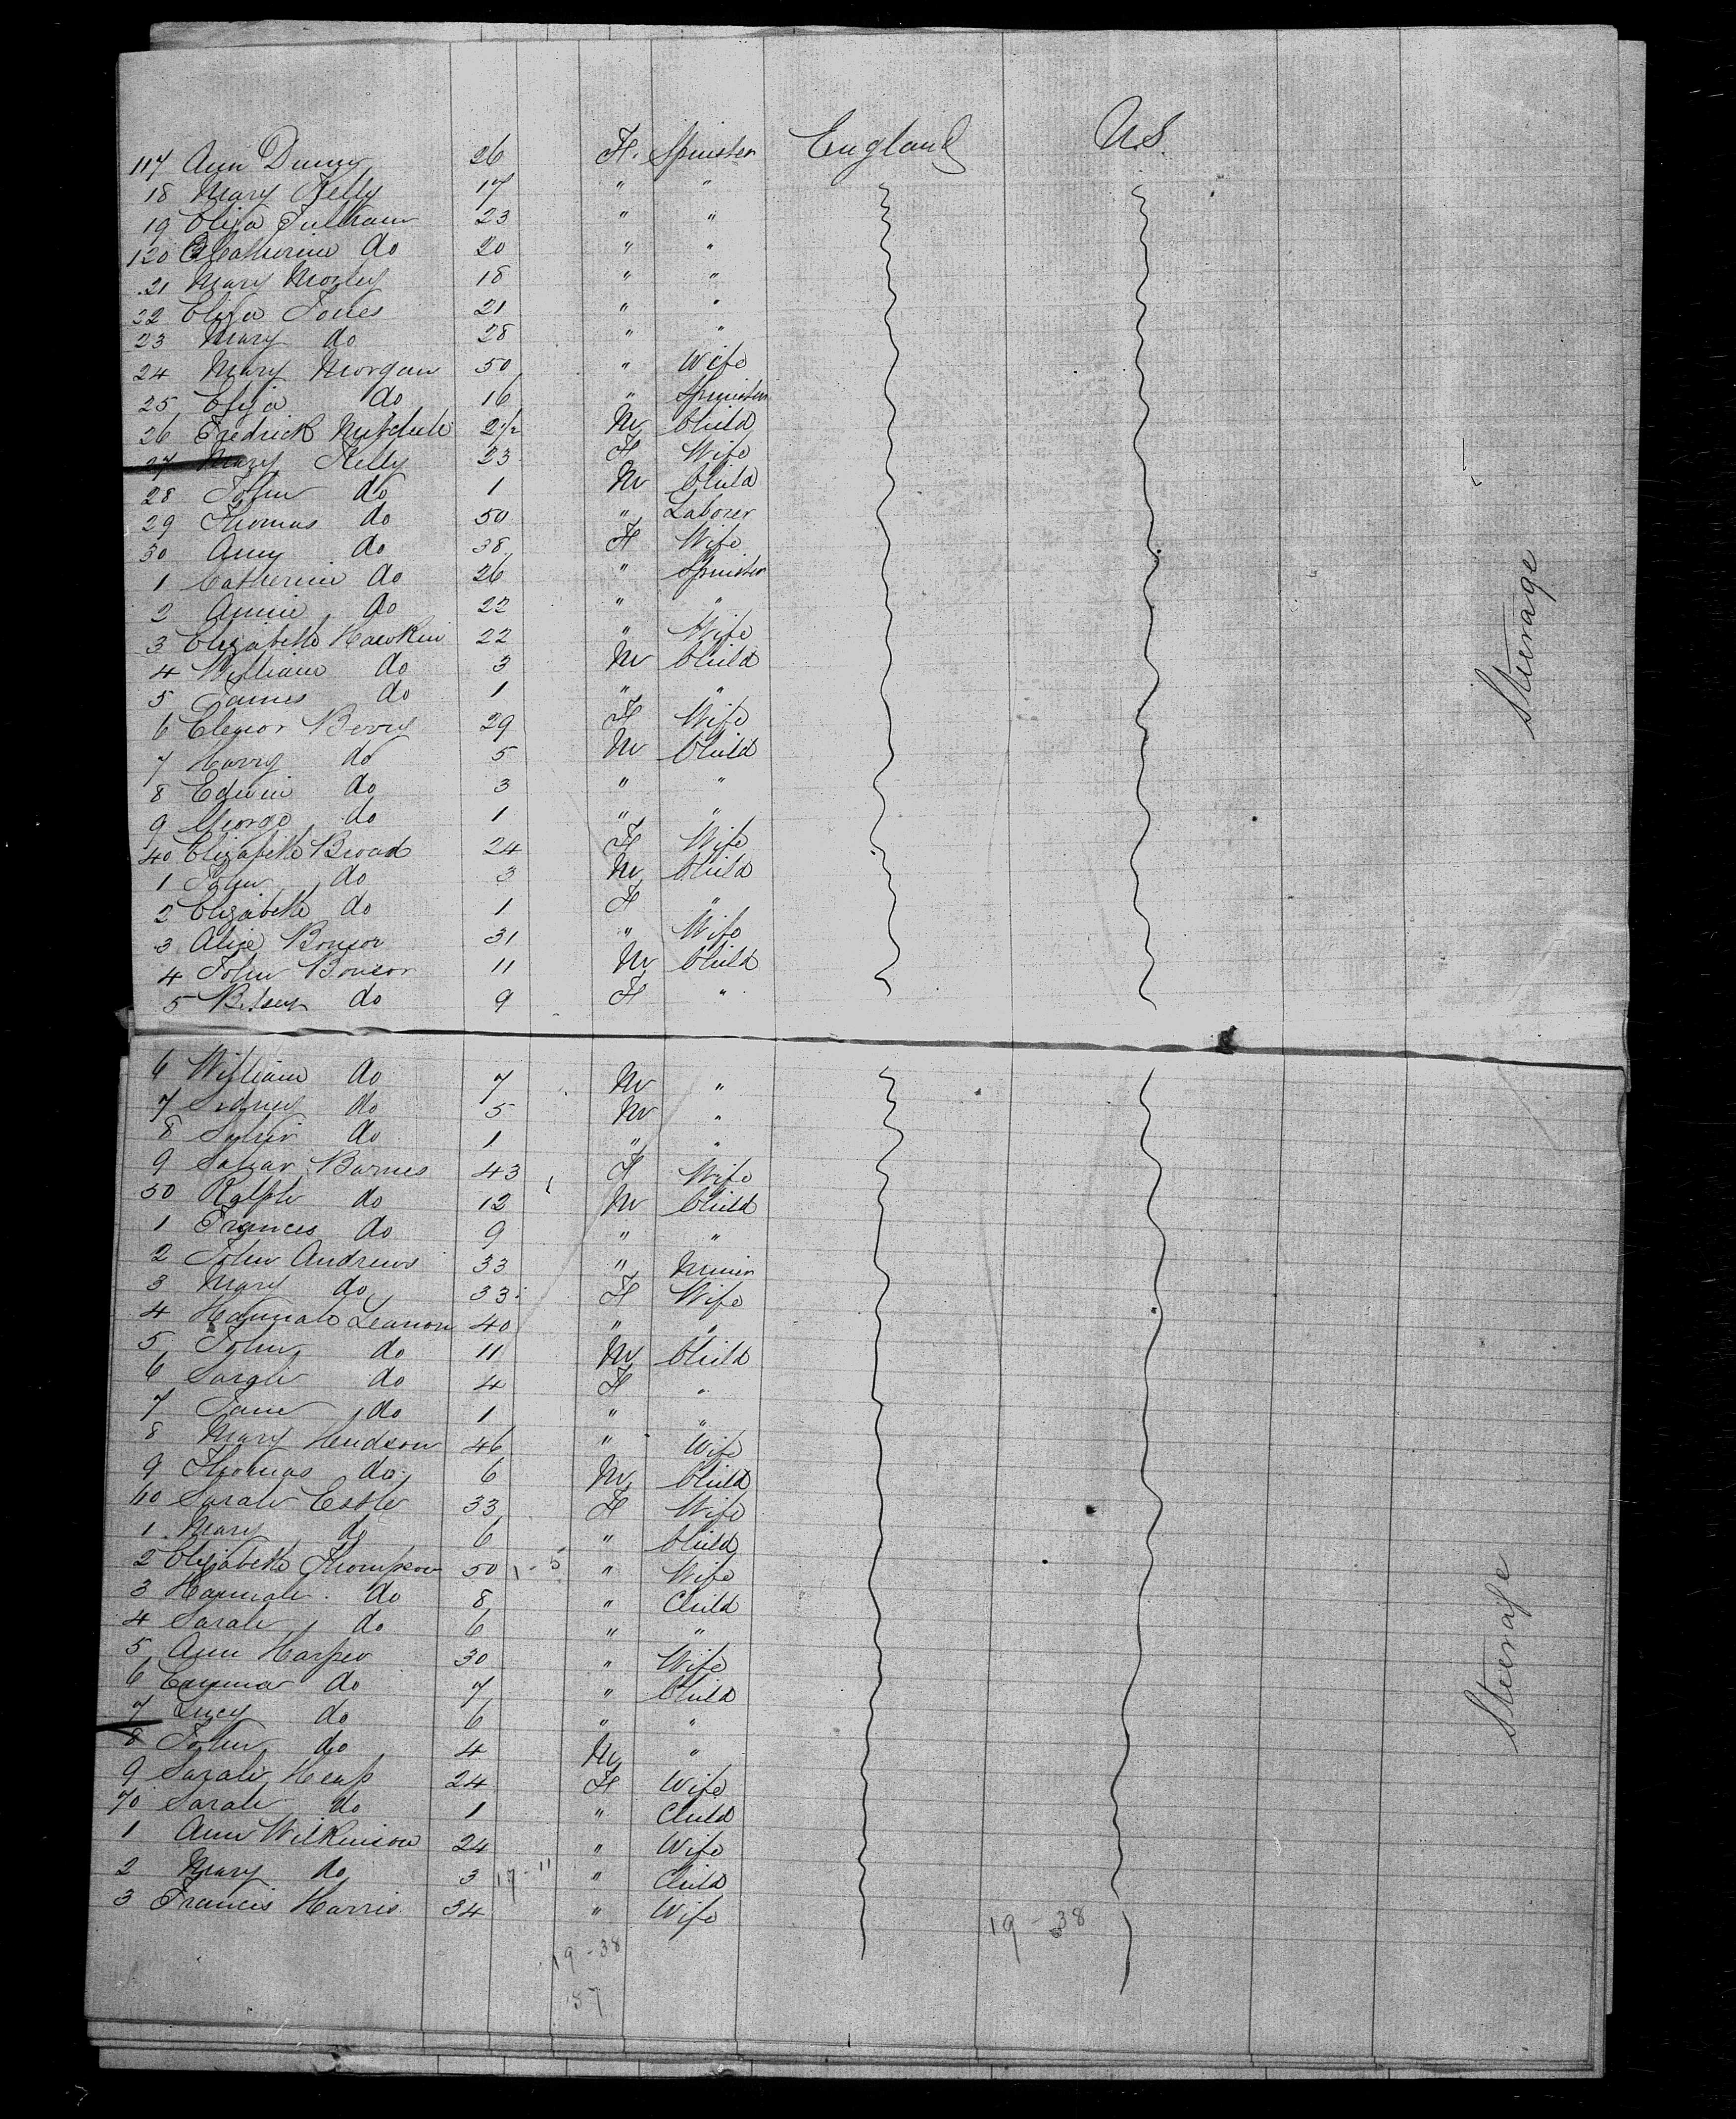 117 Ann Dunny 26 F. Spinster England U.S.
18 Mary Kelly 17 " "
19 Eliza Fulham 23 " "
120 Catherine do 20 " "
21 Mary Mozley 18 " "
22 Eliza Jones 21 " "
23 Mary do 28 " "
24 Mary Morgan 50 " Wife
25 Eliza do 16 " Spinster
26 Fredrick 2 1/2 M Child
27 Mary Kelly 23 F Wife
28 John do 1 M Child
29 Thomas do 50 " Laborer
30 Amy do 38 F Wife
1 Catherine do 26 " Spinster
2 Annie do 22 " "
3 Elizabeth Hawkin 22 " Wife
4 William do 3 M Child
5 James do 1 " "
6 Elenor Berry 29 F Wife
7 Harry do 5 M Child
8 Edwin do 3 " "
9 George do 1 " "
40 Elizabeth Broad 24 F Wife
1 John do 3 M Child
2 Elizabeth do 1 F "
3 Alice Bonsor 31 " Wife
4 John Bonsor 11 M Child
5 Betsey do 9 F "
Steerage
6 William do 7 M "
7 Sidney do 5 M "
8 do 1 " "
9 Barnes 43 F Wife
50 Ralph do 12 M Child
1 Frances do 9 " "
2 John Andrews 33 " Miner
3 Mary do 33 F Wife
4 Hannah 40 " "
5 John do 11 M Child
6 Sarah do 4 F "
7 Jane do 1 " "
8 Mary Hudson 46 " Wife
9 Thomas do 6 M Child
60 Sarah 33 F Wife
1 Mary do 6 " Child
2 Elizabeth Thompson 50 1-5 " Wife
3 Hannah do 8 " Child
4 Sarah do 6 " "
5 Ann Harper 30 " Wife
6 Emma do 7 " Child
7 Lucy do 6 " "
8 John do 4 M "
9 Sarah Heap 24 F Wife
70 Sarah do 1 " Child
1 Ann Wilkinson 24 " Wife
2 Mary do 3 17-11 " Child
3 Francis Harris 34 " Wife
Steerage
19-38 19-38
57